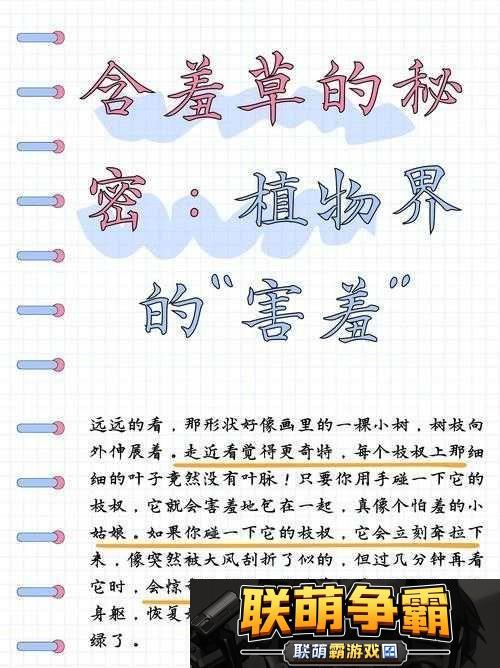 含羞草的秘
密：植物界
的“害羞”
远远的看，那形状好像画里的一棵小树，树枝向
外伸展着。走近看觉得更奇特，每个枝杈上那细
细的叶子竟然没有叶脉！只要你用手碰一下它的
枝杈，它就会害羞地包在一起，真像个怕羞的小
姑娘。如果你碰一下它的枝杈，它会立刻奔拉下
来，像突然被大风刮折了似的，但过几分钟再看
它时，会惊
身躯，恢复
绿了。
联萌争霸
联萌霸游戏网